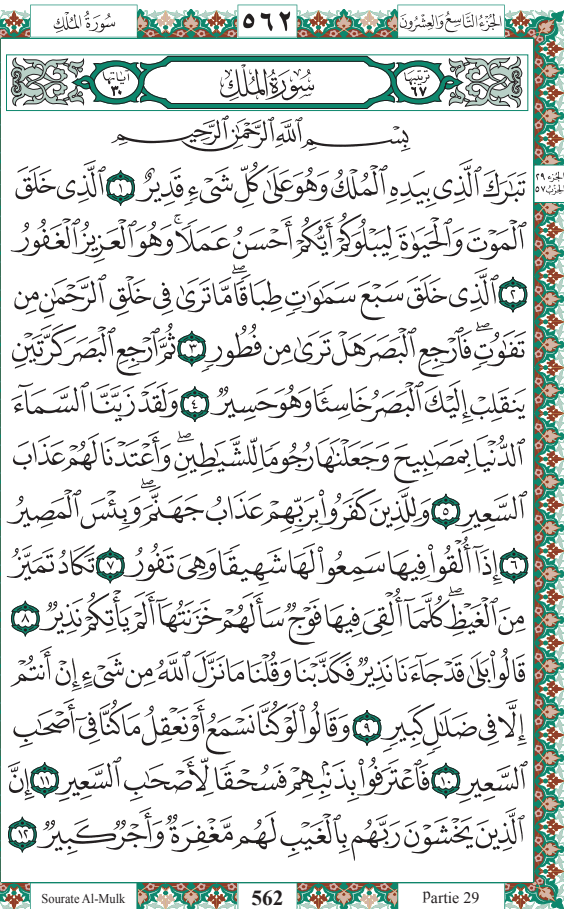 سُورَةُ المُلْكِ
٥٦٢
الجُزْءُ التَّاسِعُ وَالعِشْرُونَ
ترتيبها ٦٧
سُورَةُ المُلْكِ
آياتها ٣٠
بِسْمِ ٱللَّهِ ٱلرَّحْمَٰنِ ٱلرَّحِيمِ
تَبَٰرَكَ ٱلَّذِى بِيَدِهِ ٱلْمُلْكُ وَهُوَ عَلَىٰ كُلِّ شَىْءٍ قَدِيرٌ ١ ٱلَّذِى خَلَقَ
الجزء ٢٩
الحزب ٥٧
ٱلْمَوْتَ وَٱلْحَيَوٰةَ لِيَبْلُوَكُمْ أَيُّكُمْ أَحْسَنُ عَمَلًا ۚ وَهُوَ ٱلْعَزِيزُ ٱلْغَفُورُ
٢ ٱلَّذِى خَلَقَ سَبْعَ سَمَٰوَٰتٍ طِبَاقًا ۖ مَّا تَرَىٰ فِى خَلْقِ ٱلرَّحْمَٰنِ مِن
تَفَٰوُتٍ ۖ فَٱرْجِعِ ٱلْبَصَرَ هَلْ تَرَىٰ مِن فُطُورٍ ٣ ثُمَّ ٱرْجِعِ ٱلْبَصَرَ كَرَّتَيْنِ
يَنقَلِبْ إِلَيْكَ ٱلْبَصَرُ خَاسِئًا وَهُوَ حَسِيرٌ ٤ وَلَقَدْ زَيَّنَّا ٱلسَّمَآءَ
ٱلدُّنْيَا بِمَصَٰبِيحَ وَجَعَلْنَٰهَا رُجُومًا لِّلشَّيَٰطِينِ ۖ وَأَعْتَدْنَا لَهُمْ عَذَابَ
ٱلسَّعِيرِ ٥ وَلِلَّذِينَ كَفَرُوا۟ بِرَبِّهِمْ عَذَابُ جَهَنَّمَ ۖ وَبِئْسَ ٱلْمَصِيرُ
٦ إِذَآ أُلْقُوا۟ فِيهَا سَمِعُوا۟ لَهَا شَهِيقًا وَهِىَ تَفُورُ ٧ تَكَادُ تَمَيَّزُ
مِنَ ٱلْغَيْظِ ۖ كُلَّمَآ أُلْقِىَ فِيهَا فَوْجٌ سَأَلَهُمْ خَزَنَتُهَآ أَلَمْ يَأْتِكُمْ نَذِيرٌ ٨
قَالُوا۟ بَلَىٰ قَدْ جَآءَنَا نَذِيرٌ فَكَذَّبْنَا وَقُلْنَا مَا نَزَّلَ ٱللَّهُ مِن شَىْءٍ إِنْ أَنتُمْ
إِلَّا فِى ضَلَٰلٍ كَبِيرٍ ٩ وَقَالُوا۟ لَوْ كُنَّا نَسْمَعُ أَوْ نَعْقِلُ مَا كُنَّا فِىٓ أَصْحَٰبِ
ٱلسَّعِيرِ ١٠ فَٱعْتَرَفُوا۟ بِذَنۢبِهِمْ فَسُحْقًا لِّأَصْحَٰبِ ٱلسَّعِيرِ ١١ إِنَّ
ٱلَّذِينَ يَخْشَوْنَ رَبَّهُم بِٱلْغَيْبِ لَهُم مَّغْفِرَةٌ وَأَجْرٌ كَبِيرٌ ١٢
Sourate Al-Mulk
562
Partie 29